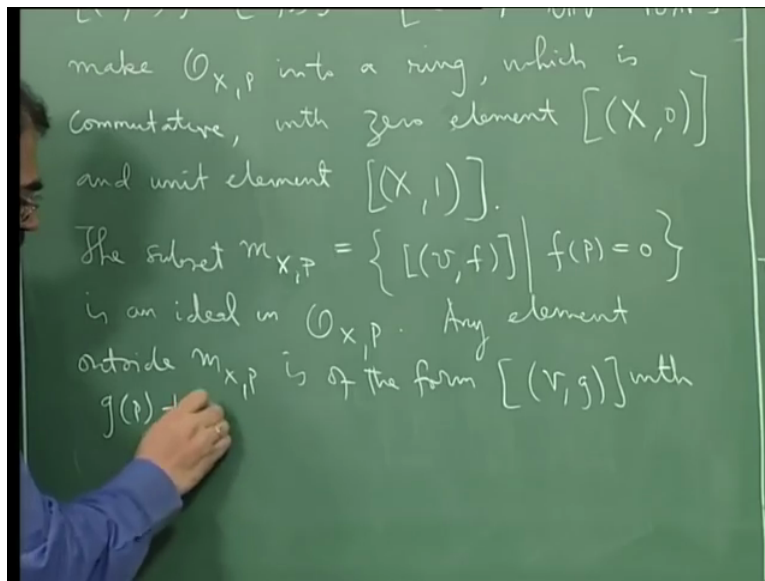 make O_{X,P} into a ring, which is
commutative, with zero element [(X,0)]
and unit element [(X,1)].
The subset m_{X,P} = { [(U,f)] | f(P) = 0 }
is an ideal in O_{X,P}. Any element
outside m_{X,P} is of the form [(V,g)] with
g(P)